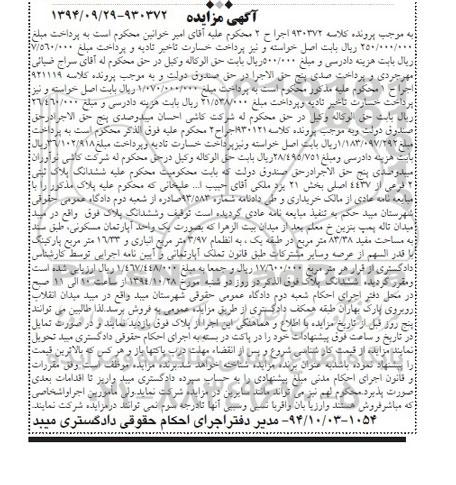 آگهی مزایده ۹۳۰۳۷۲-۱۳۹۴/۰۹/۲۹
به موجب پرونده کلاسه ۹۳۰۳۷۲ اجرا ح ۲ محکوم علیه آقای امیر خوانین محکوم است به پرداخت مبلغ
۲۵۰/۰۰۰/۰۰۰ ریال بابت اصل خواسته و نیز پرداخت خسارت تاخیر تادیه و پرداخت مبلغ ۷/۵۶۰/۰۰۰
ریال بابت هزینه دادرسی و مبلغ ۵۰۰/۰۰۰ریال بابت حق الوکاله وکیل در حق محکوم له آقای سراج ضیائی
مهرجردی و پرداخت صدی پنج حق الاجرا در حق صندوق دولت و به موجب پرونده کلاسه ۹۲۱۱۱۹
اجراح ۲ محکوم علیه مذکور محکوم است به پرداخت مبلغ ۱/۰۷۰/۰۰۰/۰۰۰ ریال بابت اصل خواسته و نیز
پرداخت خسارت تاخیر تادیه وپرداخت مبلغ ۲۱/۵۳۸/۰۰۰ ریال بابت هزینه دادرسی و مبلغ ۲۶/۴۶۰/۰۰۰
ریال بابت حق الوکاله وکیل در حق محکوم له شرکت کاشی احسان میبدوصدی پنج حق الاجرادرحق
صندوق دولت وبه موجب پرونده کلاسه۹۳۰۱۲۱اجراح۲ محکوم علیه فوق الذکر محکوم است به پرداخت
مبلغ ۱/۱۸۳/۰۹۷/۲۹۲ریال بابت اصل خواسته ونیزپرداخت خسارت تادیه وپرداخت مبلغ۳۶/۱۰۲/۹۱۸ریال
بابت هزینه دادرسی ومبلغ۲۸/۴۹۵/۷۵۱ریال بابت حق الوکاله وکیل درحق محکوم له شرکت کاشی نوآوران
میبدوصدی پنج حق الاجرادرحق صندوق دولت که بابت محکومیت محکوم علیه ششدانگ پلاک ثبتی
۲ فرعی از ۴۴۳۷ اصلی بخش ۲۱ یزد ملکی آقای حبیب ا... علیخانی که محکوم علیه پلاک مذکور را با
مبایعه نامه عادی از مالک خریداری و طی دادنامه شماره ۹۳/۵۸۳صادره از شعبه دوم دادگاه عمومی حقوقی
شهرستان میبد حکم به تنفیذ مبایعه نامه عادی گردیده است توقیف وششدانگ پلاک فوق واقع در میبد
میدان تاله پمپ بنزین خ معلم بعد از میدان بیت الزهرا که بصورت یک واحد آپارتمان مسکونی، طبق سند
به مساحت مفید ۸۳/۳۸ متر مربع در طبقه یک ، به انظمام ۳/۹۷ متر مربع انباری و ۱۶/۳۳ متر مربع پارکینگ
با قدر السهم از عرصه وسایر مشترکات طبق قانون تملک آپارتمانی و آیین نامه اجرایی توسط کارشناس
دادگستری از قرار هر متر مربع ۱۷/۶۰۰/۰۰۰ ریال و جمعا به مبلغ ۱/۴۶۷/۴۴۸/۰۰۰ ریال ارزیابی شده است
ومقررگردیده ششدانگ پلاک فوق الذکر در روز دو شنبه مورخ ۱۳۹۴/۱۰/۲۸ از ساعت ۱۰ الی ۱۱ صبح
در محل دفتر اجرای احکام شعبه دوم دادگاه عمومی حقوقی شهرستان میبد واقع در میبد میدان انقلاب
روبروی پارک بهاران طبقه همکف دادگستری از طریق مزایده عمومی به فروش برسد.لذا طالبین می توانند
پنج روز قبل از تاریخ مزایده با اطلاع و هماهنگی این اجرا از پلاک فوق بازدید نمایند و در صورت تمایل
در تاریخ و ساعت فوق پیشنهادات خود را در پاکت در بسته به اجرای احکام حقوقی دادگستری میبد تحویل
نمایند مزایده از قیمت کارشناسی شروع و پس از انقضاء مهلت درب پاکتها باز و هر کس که بالاترین قیمت
را پیشنهاد نموده باشد به عنوان برنده مزایده شناخته خواهد شد.برنده مزایده موظف است وفق مقررات
و قانون اجرای احکام مدنی مبلغ پیشنهادی را به حساب سپرده دادگستری میبد واریز تا اقدامات بعدی
صورت پذیرد.محکوم لهم نیز می تواند مانند سایرین در مزایده شرکت نماید.ولی مامورین اجراواشخاصی
که مباشرفروش هستند وارزیاب بان واقربا نسبی وسببی آنها تادرجه سوم نمی توانند درمزایده شرکت نمایند.
۱۰۵۴-۹۴/۱۰/۰۳- مدیر دفتراجرای احکام حقوقی دادگستری میبد